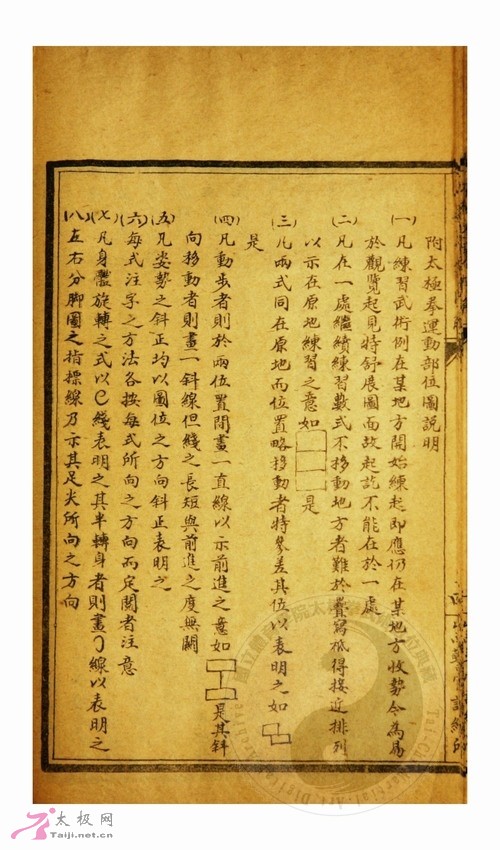 附太極拳運動部位圖說明
(一)凡練習武術例在某地方開始練起即應仍在某地方收勢今為易
於觀覽起見特舒展圖面故起訖不能在於一處
(二)凡在一處繼續練習數式不移動地方者難於疊寫祗得接近排列
以示在原地練習之意如 是
(三)凡兩式同在原地而位置略移動者特參差其位以表明之如
是
(四)凡動步者則於兩位置間畫一直線以示前進之意如 是其斜
向移動者則畫一斜線但綫之長短與前進之度無關
(五)凡姿勢之斜正均以圖位之方向斜正表明之
(六)每式注字之方法各按每式所向之方向而定閱者注意
(七)凡身體旋轉之式以綫表明之其半轉身者則畫線以表明之
(八)左右分脚圖之指標線乃示其足尖所向之方向
太极网
Taiji.net.cn